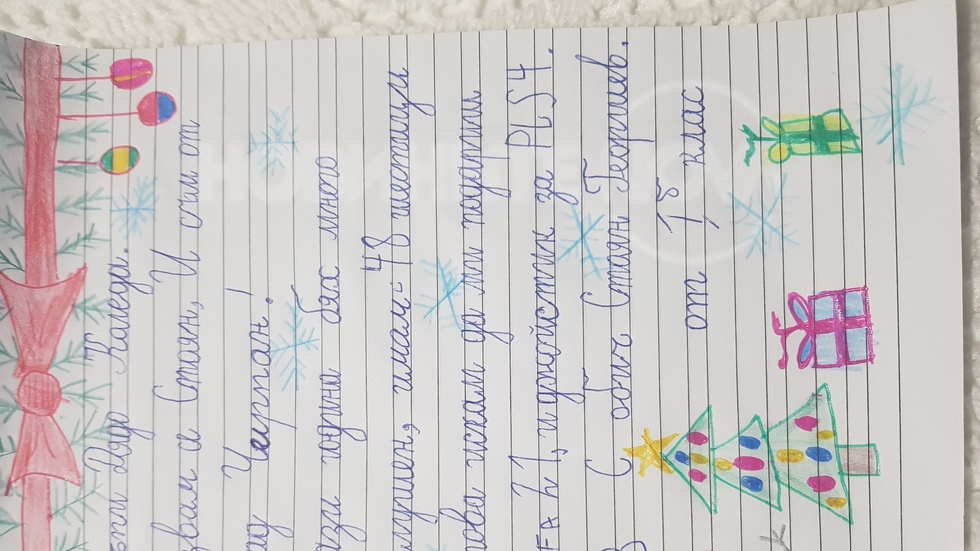 ъпи Дядо Коледа.
звам а Стоян, И съм от
ад Чирпан!
ази година бях много
лушен, имам 48 шестици
това искам да ми подариш
FA 21, и джойстик за PLS4.
С обич Стоян Георгиев.
от I б клас